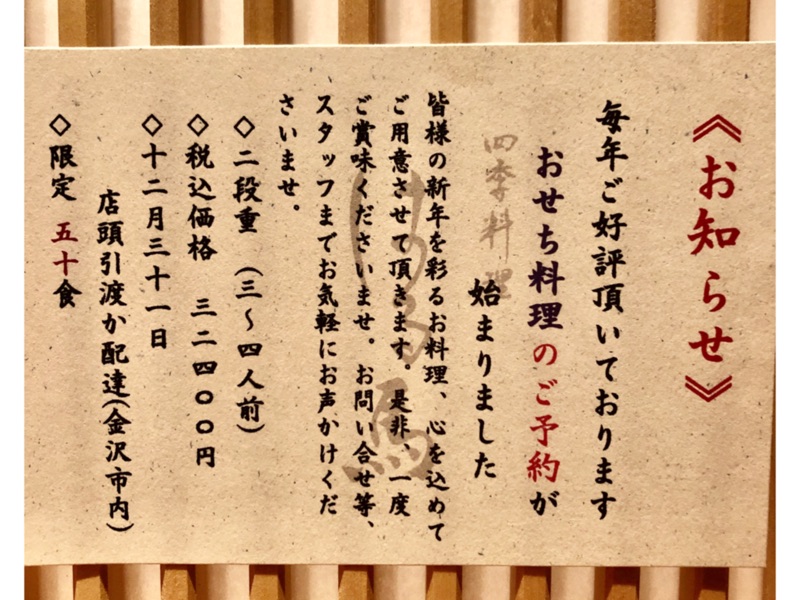 《お知らせ》
毎年ご好評頂いております
おせち料理のご予約が
始まりました
四季料理
はる馬
皆様の新年を彩るお料理、心を込めて
ご用意させて頂きます。是非、一度
ご賞味くださいませ。お問い合せ等、
スタッフまでお気軽にお声かけくだ
さいませ。
◇二段重 (三～四人前)
◇税込価格 三二四〇〇円
◇十二月三十一日
店頭引渡か配達(金沢市内)
◇限定 五十食